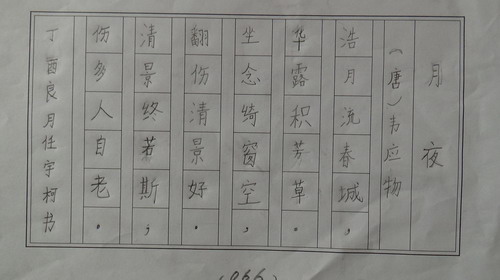 月夜
（唐）韦应物
浩月流春城，
华露积芳草。
坐念绮窗空，
翻伤清景好。
清景终若斯，
伤多人自老。
丁酉良月任宇柯书